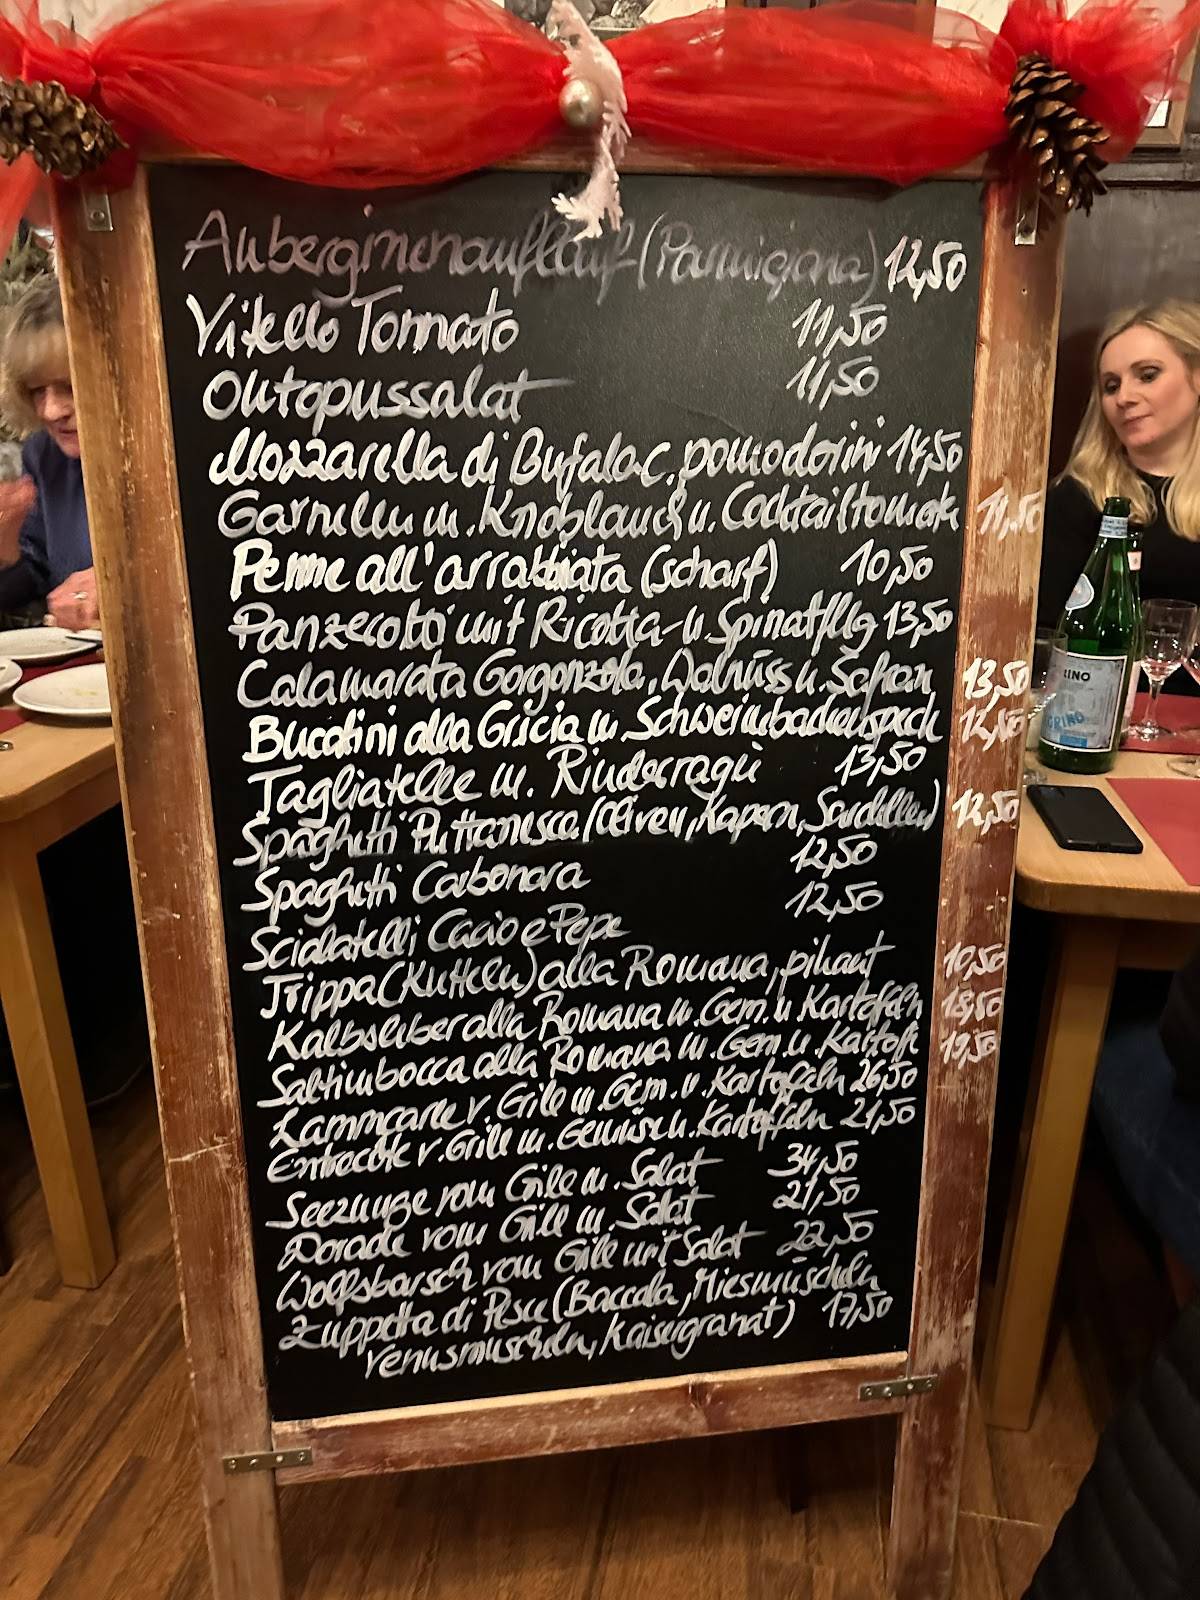 Auberginenauflauf (Parmigiana) 12,50
Vitello Tonnato 11,50
Oktopussalat 11,50
Mozzarella di Bufala c. pomodorini 14,50
Garnelen m. Knoblauch u. Cocktailtomate 11,50
Penne all'arrabbiata (scharf) 10,50
Panzerotti mit Ricotta u. Spinatfllg 13,50
Calamarata Gorgonzola, Walnüss u. Safran 13,50
Bucatini alla Gricia m. Schweinebackenspeck 12,50
Tagliatelle m. Rinderragù 13,50
Spaghetti Puttanesca (Oliven, Kapern, Sardellen) 12,50
Spaghetti Carbonara 12,50
Scialatelli Cacio e Pepe 12,50
Trippa (Kutteln) alla Romana, pikant 10,50
Kalbsleber alla Romana m. Gem. u Kartofeln 18,50
Saltimbocca alla Romana m. Gem. u. Kartoffl 19,50
Lammcarre v. Grill m. Gem. u. Kartoffeln 26,50
Entrecote v. Grill m. Gemüse u. Kartoffeln 21,50
Seezunge vom Grill m. Salat 34,50
Dorade vom Grill m. Salat 21,50
Wolfsbarsch vom Grill mit Salat 22,50
Zuppetta di Pesce (Baccala, Miesmuscheln
Venusmuscheln, Kaisergranat) 17,50